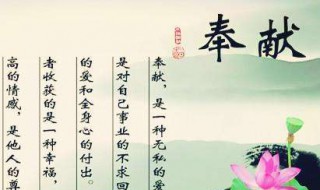 奉献
奉献，是一种无私的爱
是对自己事业的不求回
的爱和全身心的付出。
者收获的是一种幸福，
高的情感，是他人的尊